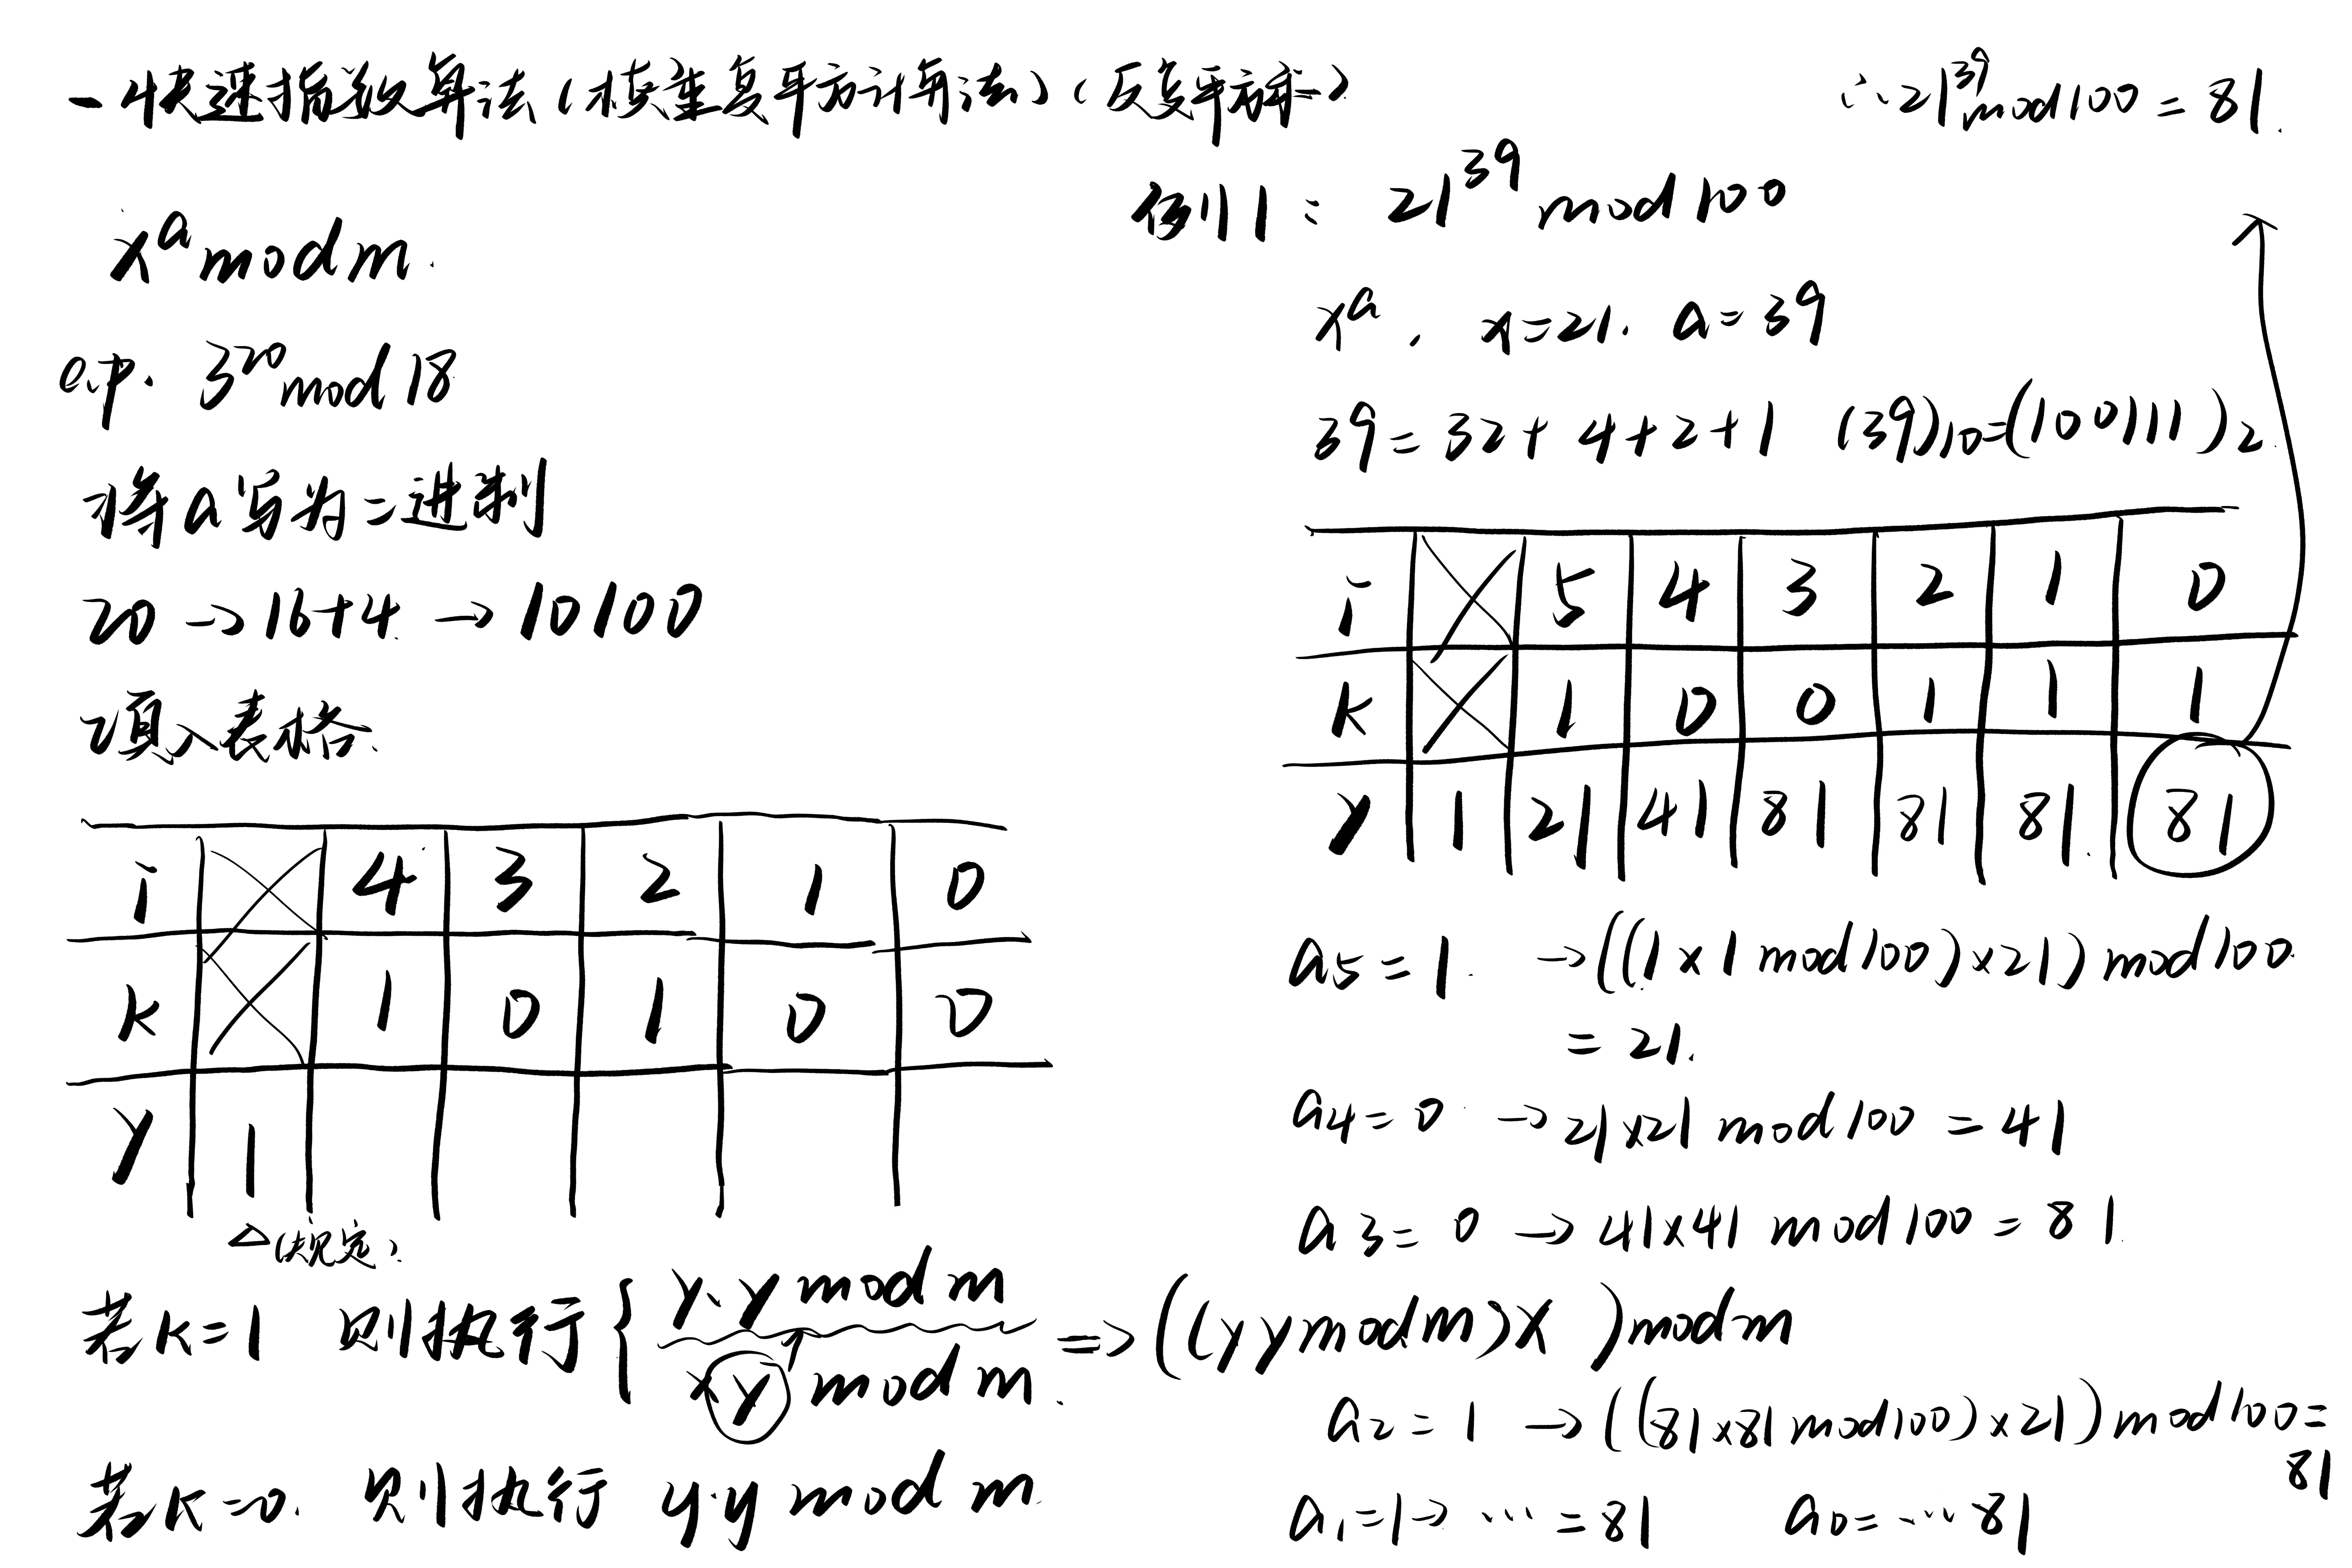 一快速指数算法(模重复平方计算法)(反复平方乘)
x^a mod m.
e.p. 3^20 mod 18
将a写为二进制
20 → 16+4. → 10100
填入表格.
i 4 3 2 1 0
K 1 0 1 0 0
Y 1
△(规定)
若K=1 则执行 { y·y mod m
xy mod m. => ((y y mod m) X ) mod m
若K=0. 则执行 y·y mod m
∴ 21^39 mod 100 = 81.
例1: 21^39 mod 100
x^a, x=21. a=39
39 = 32+4+2+1 (39)10=(100111)2.
i 5 4 3 2 1 0
K 1 0 0 1 1 1
Y 1 21 41 81 81 81. 81
a5 = 1. → ((1×1 mod 100)×21) mod 100.
= 21.
a4 = 0 → 21×21 mod 100 = 41
a3 = 0 → 41×41 mod 100 = 81
a2 = 1 → ((81×81 mod 100)×21) mod 100 =
81
a1 = 1 → ... = 81 a0 = ... 81